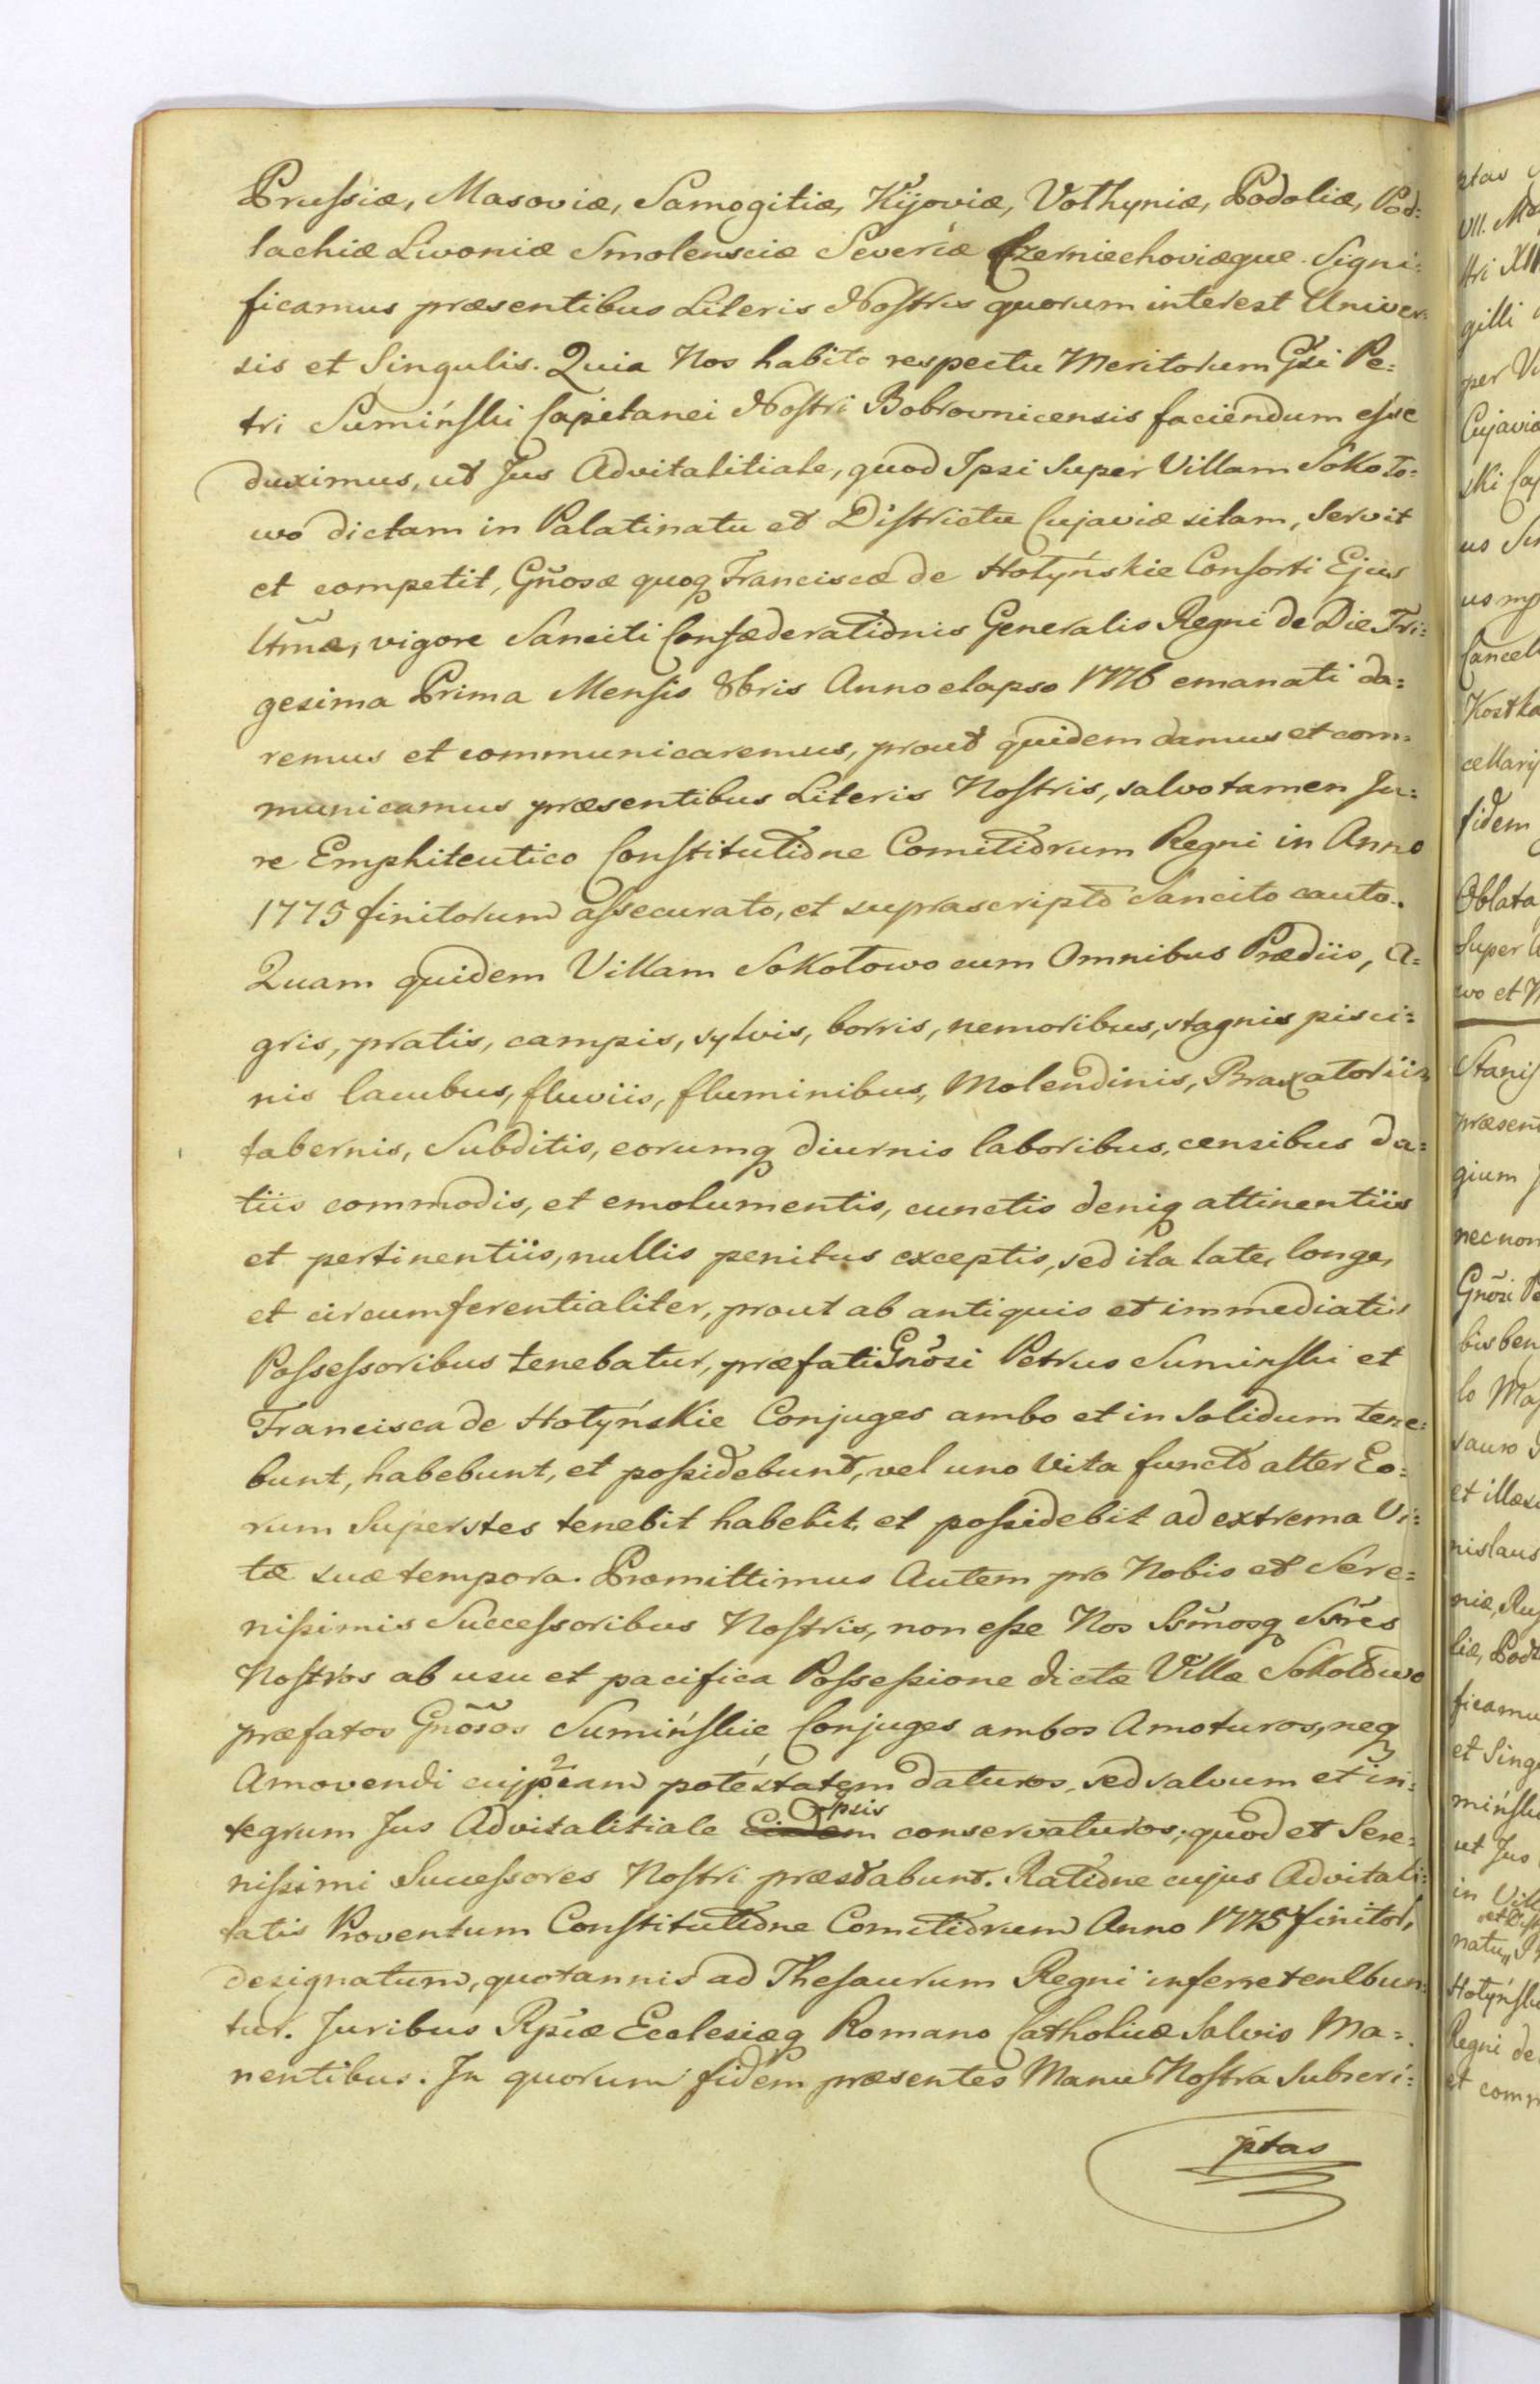 Prussiæ, Masoviæ, Samogitiæ, Kijoviæ, Vołhyniæ, Podoliæ, Pod:
lachiæ Livoniæ Smolensciæ Severiæ Czerniechoviæque. Signi:
ficamus præsentibus Literis Nostris quorum interest Univer:
sis et Singulis. Quia Nos habito respectu Meritorum Gsi Pe:
tri Sumiński Capitanei Nostri Bobrovnicensis faciendum esse
duximus, ut Jus Advitalitiale, quod Ipsi Super Villam Sokoło:
wo dictam in Palatinatu et Districtu Cujaviæ sitam, Servit
et competit, Gñosæ quoq Franciscæ de Hołyńskie Consorti Ejus
ltmæ, vigore Sanciti Confæderationis Generalis Regni de Die Tri:
gesima Prima Mensis 8bris Anno elapso 1776 emanati da:
remus et communicaremus, prout quidem damus et com:
municamus præsentibus Literis Nostris, salvo tamen Ju:
re Emphiteutico Constitutione Comitiorum Regni in Anno
1775 finitorum assecurato, et suprascripto Sancito cauto.
Quam quidem Villam Sokołowo cum Omnibus Prædiis, A:
gris, pratis, campis, sylvis, borris, nemoribus, stagnis pisci:
nis lacubus, fluviis, fluminibus, Molendinis, Braxatoriis
tabernis, Subditis, eorumq diurnis laboribus, censibus da:
tiis commodis, et emolumentis, cunctis deniq attinentiis
et pertinentiis, nullis penitus exceptis, sed ita late, longe,
et circumferentialiter, prout ab antiquis et immediatis
Possessoribus tenebatur, præfati Gnõsi Petrus Suminski et
Francisca de Hołyńskie Conjuges ambo et in Solidum tene:
bunt, habebunt, et possidebunt, vel uno Vita functo alter Eo:
rum Superstes tenebit habebit et possidebit ad extrema Vi:
tæ suæ tempora. Promittimus Autem pro Nobis et Sere:
nissimis Successoribus Nostris, non esse Nos Ssmosq Ssres
Nostros ab usu et pacifica Possessione dictæ Villæ Sokołowo
præfatos Gñosos Sumińskie Conjuges ambos Amoturos, neq
Amovendi cujpiam potestatem daturos, sed salvum et in:
tegrum Jus Advitalitiale Eidem Ipsis conservaturos, quod et Sere:
nissimi Successores Nostri præstabunt. Ratione cujus Advitali:
tatis Proventum Constitutione Comitiorum Anno 1775 finitor,
designatum, quotannis ad Thesaurum Regni inferre tenebun:
tur. Juribus Rpiæ Ecclesiæq Romano Catholicæ Salvis Ma:
nentibus. In quorum fidem præsentes Manu Nostra Subscri:
ptas